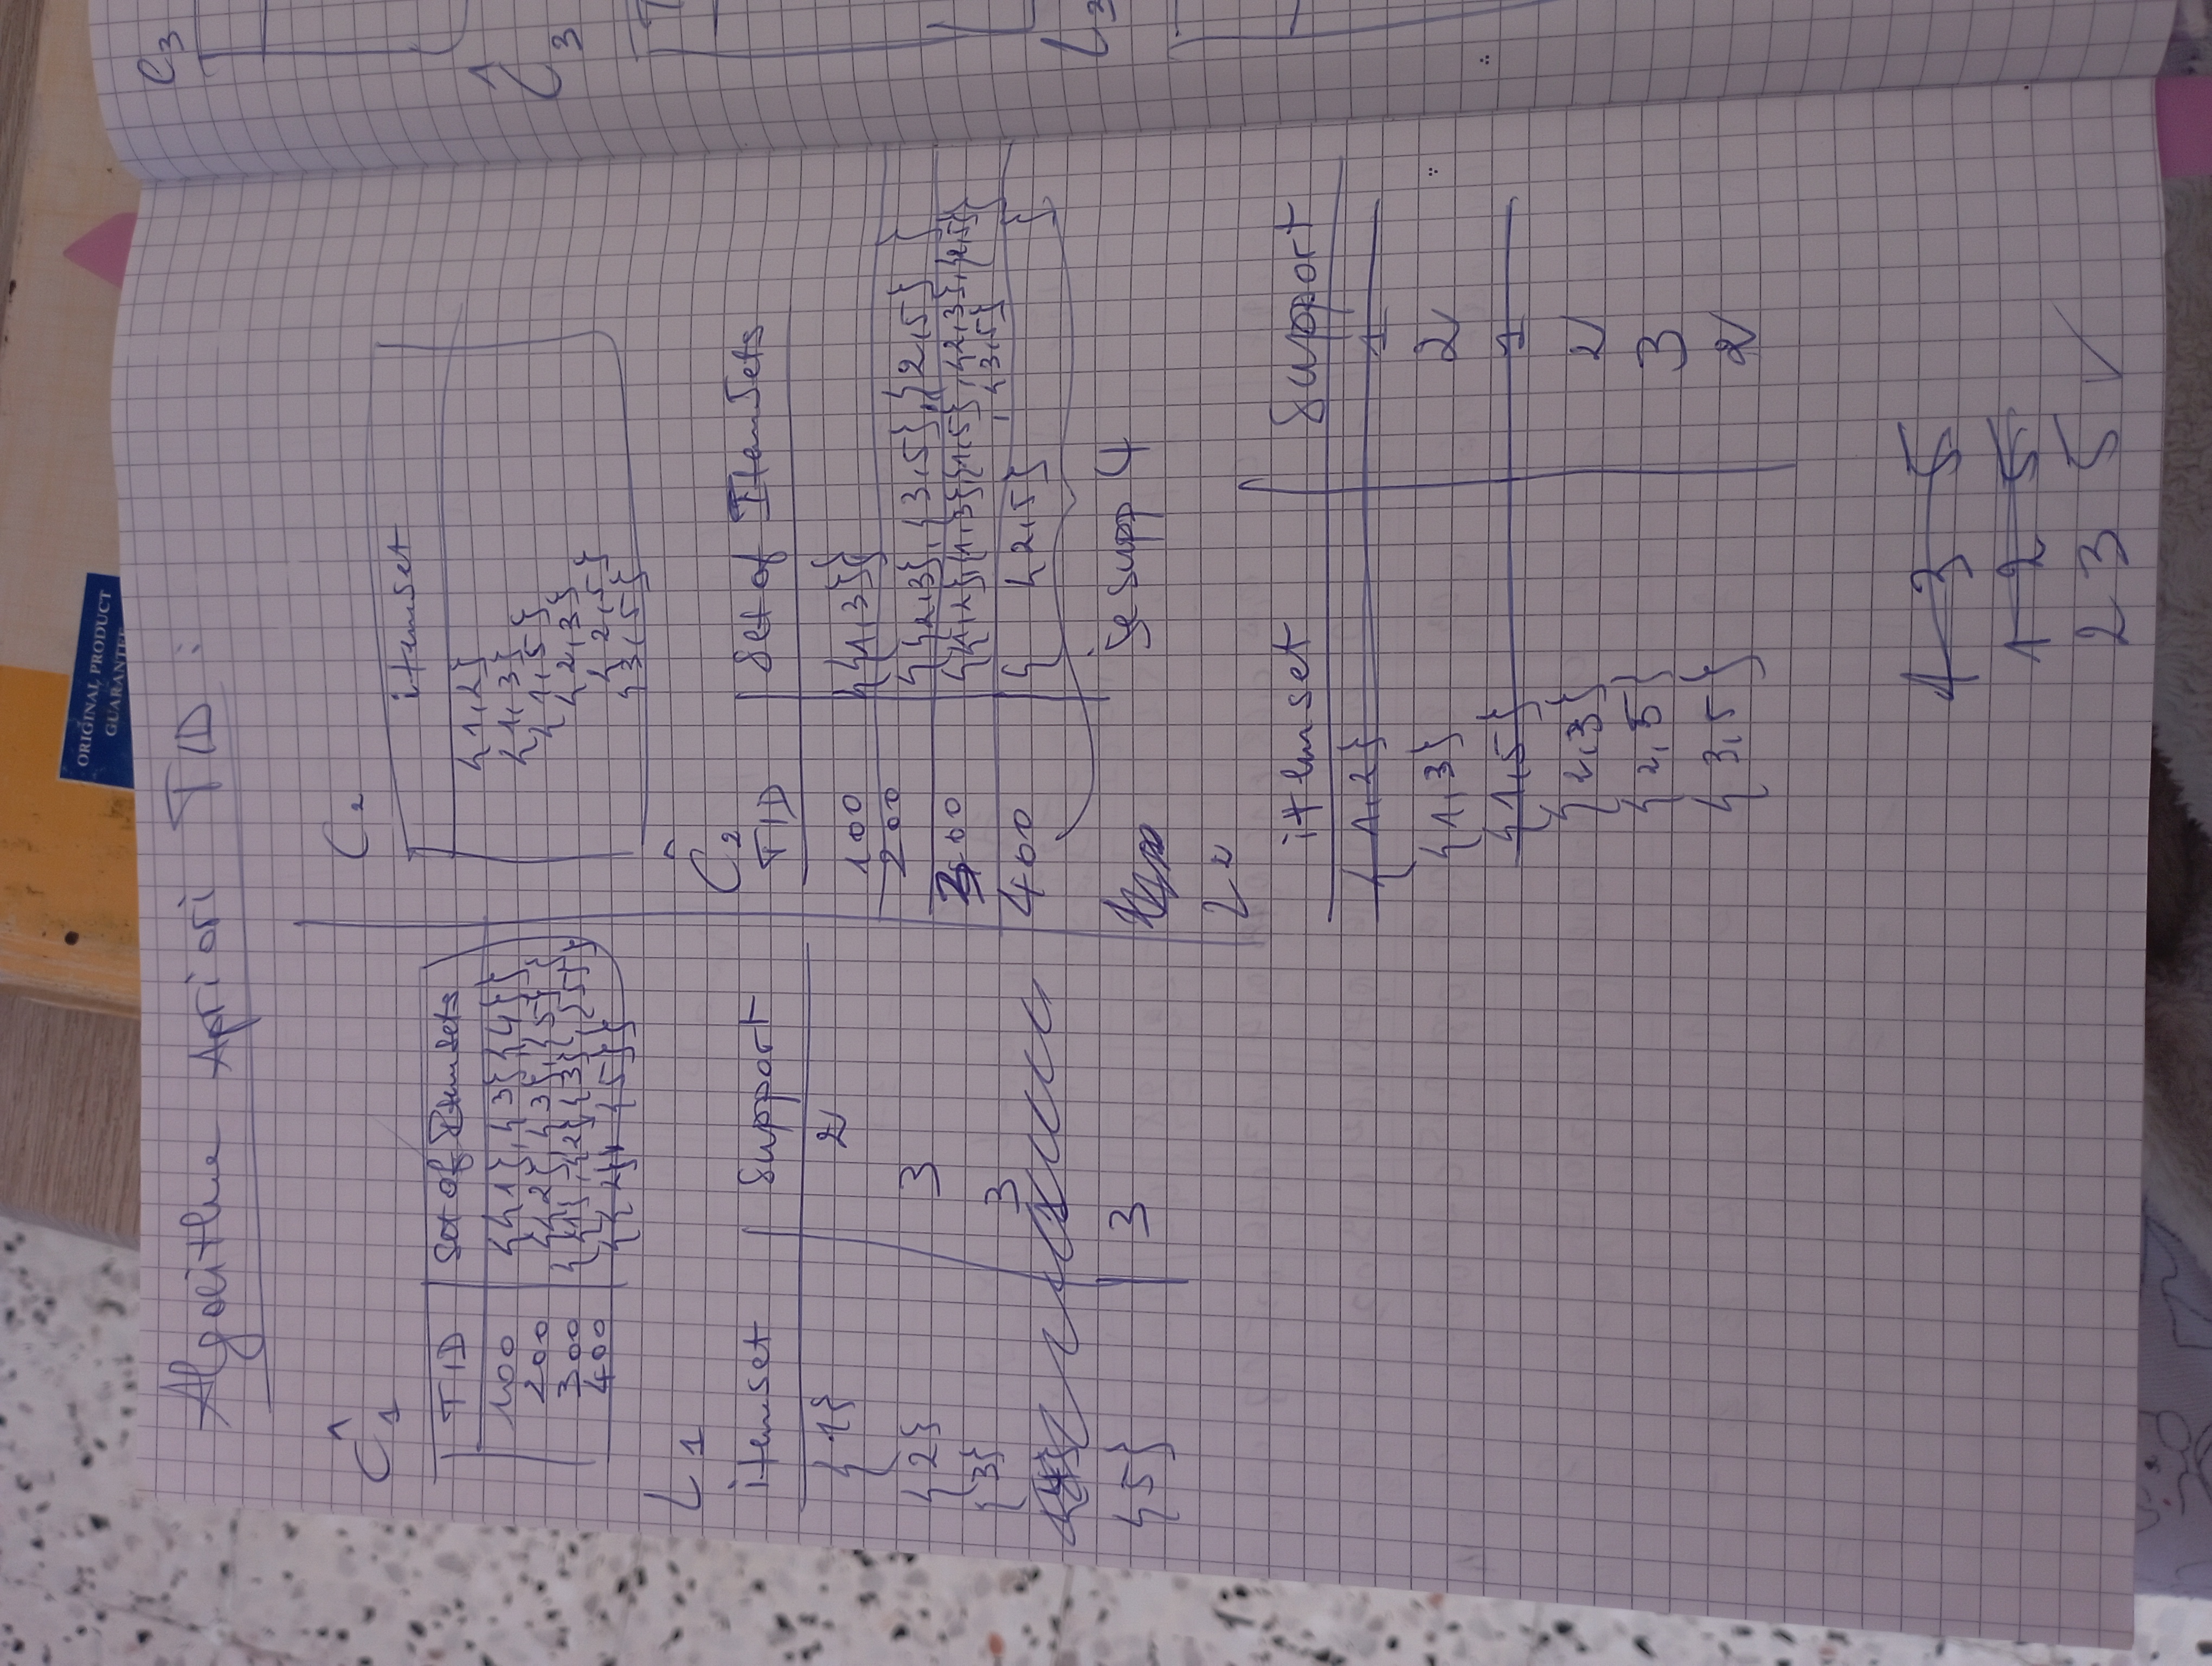 ORIGINAL PRODUCT
GUARANTEE
Algorithme Apriori TID :
Ĉ1
TID Set of Itemsets
100 {{1},{3}{4}}
200 {{2},{3},{5}}
300 {{1},{2},{3},{5}}
400 {{2}, {5}}
L1
itemset Support
{1} 2
{2} 3
{3} 3
{5} 3
C2
itemset
{1,2}
{1,3}
{1,5}
{2,3}
{2,5}
{3,5}
Ĉ2
TID Set of ItemSets
100 {{1,3}}
200 {{2,3},{3,5},{2,5} }
300 {{1,2},{1,3},{1,5},{2,3},{2,5}
,{3,5}}
400 { {2,5} }
je supp 4
L2
itemset Support
{1,2} 1
{1,3} 2
{1,5} 1
{2,3} 2
{2,5} 3
{3,5} 2
1 3 5
1 2 5
2 3 5 ✓
C3
Ĉ3
T
L3